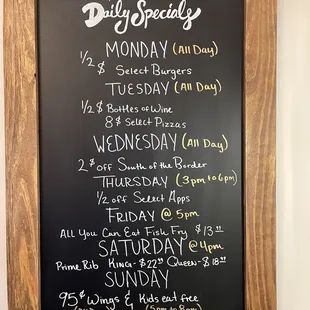 Daily Specials
MONDAY (All Day)
1/2 $ Select Burgers
TUESDAY (All Day)
1/2 $ Bottles of Wine
8$ Select Pizzas
WEDNESDAY (All Day)
2$ off South of the Border
THURSDAY (3pm to 6pm)
1/2 off Select Apps
FRIDAY @ 5pm
All You Can Eat Fish Fry $13
SATURDAY @ 4pm
Prime Rib KING-$22.99 Queen-$18.99
SUNDAY
95¢ Wings & Kids eat free
(5pm to 8pm)